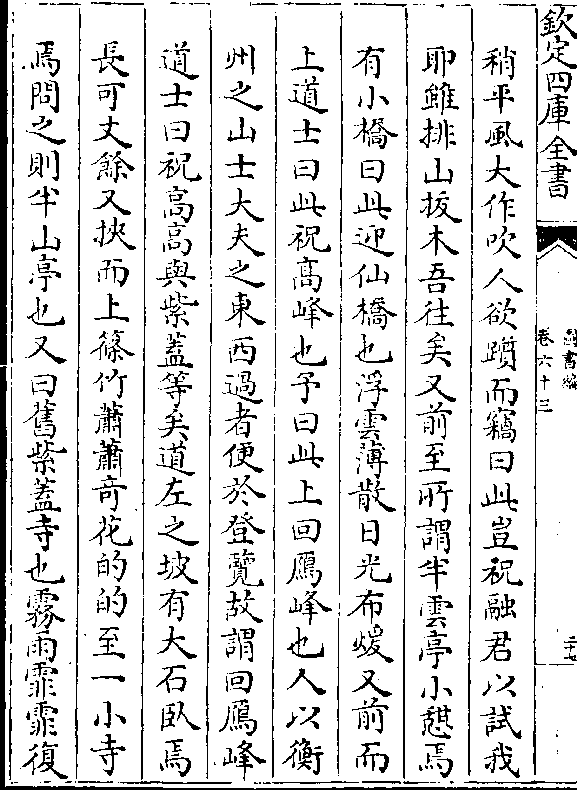 欽定四庫全書
圖書編
卷六十三
二十七
稍平風大作吹人欲躓而竊曰此豈祝融君以試我
耶雖排山拔木吾往矣又前至所謂半雲亭小憇焉
有小橋曰此迎仙橋也浮雲薄散日光布煖又前而
上道士曰此祝髙峰也予曰此上回鴈峰也人以衡
州之山士大夫之東西過者便於登覽故謂回鴈峰
道士曰祝高高與紫蓋等矣道左之坡有大石臥焉
長可丈餘又挾而上篠竹蕭蕭竒花的的至一小寺
焉問之則半山亭也又曰舊紫蓋寺也霧雨霏霏復